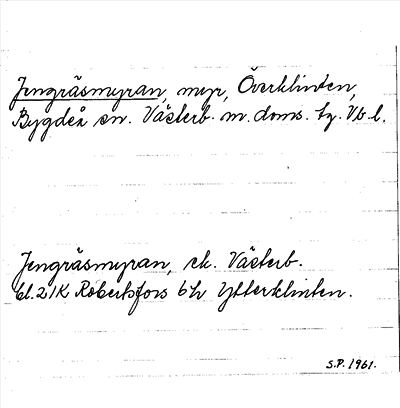 Jengräsmyran, myr, Överklinten,
Bygdeå sn. Västerb. m. doms. tg. Vb l.
Jengräsmyran, ek. Västerb.
bl. 21K Robertsfors 6h Ytterklinten.
S.P. 1961.